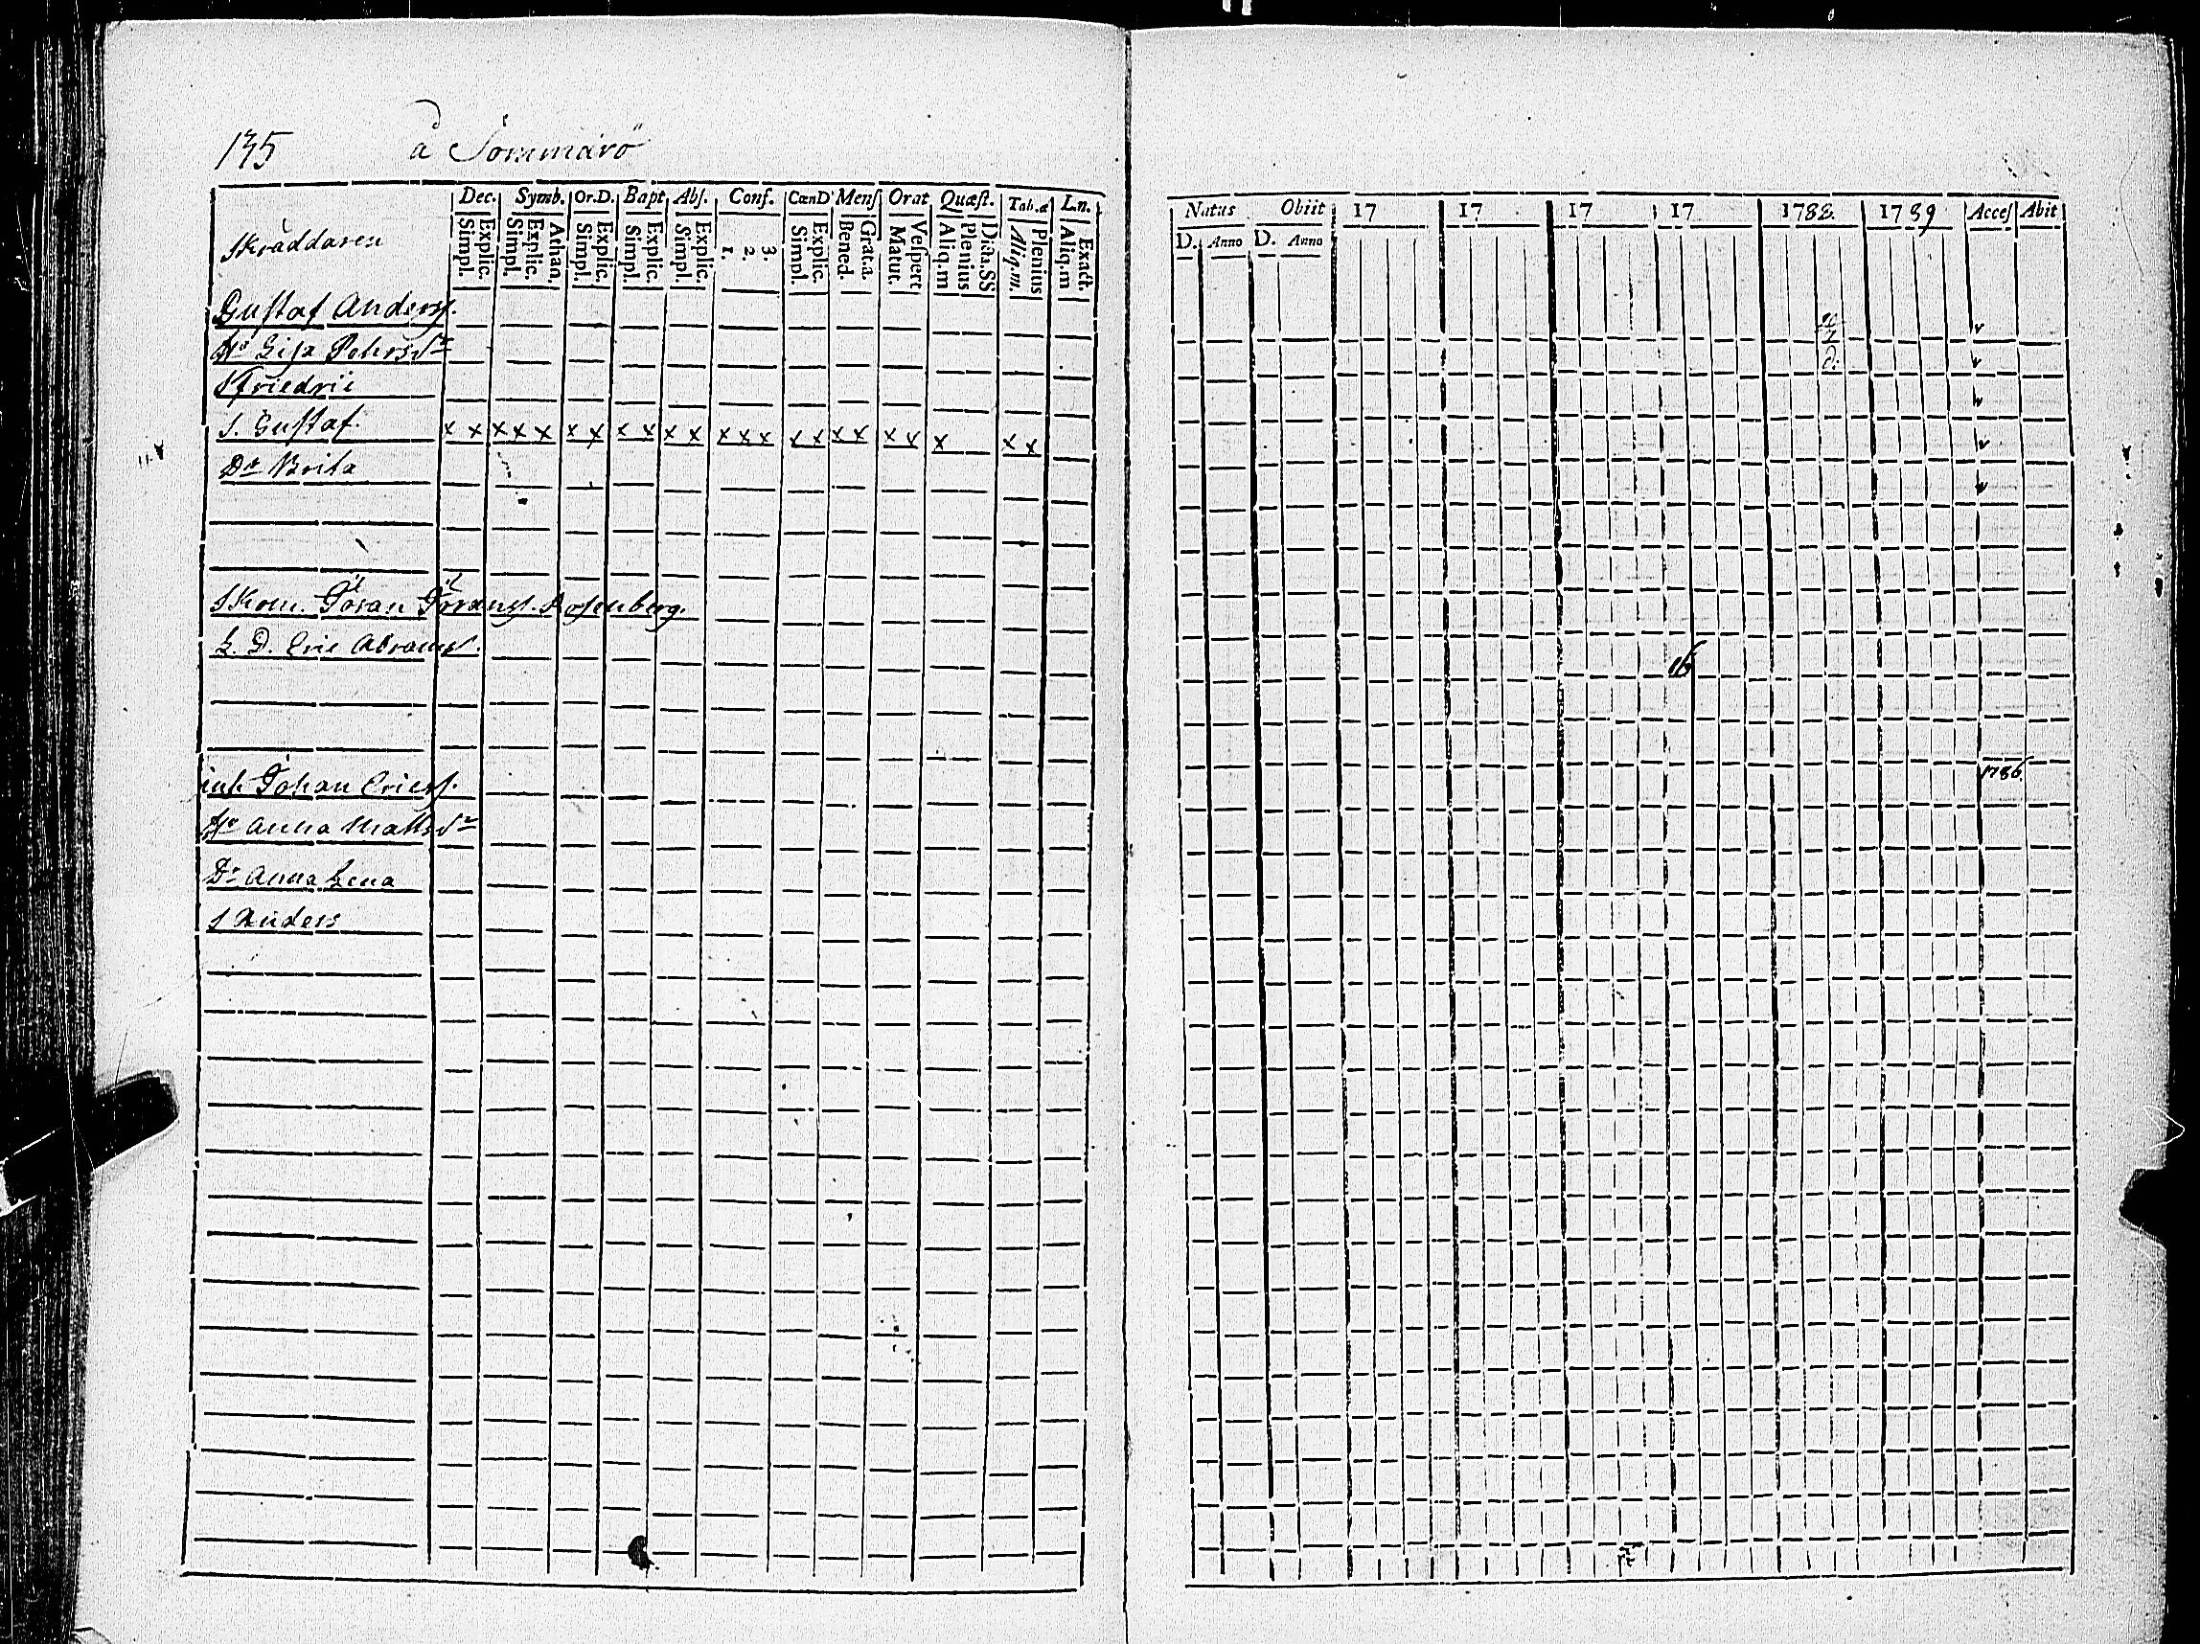 135 å Sommarö
Dec. Symb. Or.D. Bapt Abſ. Conf. CœnD Menſ Orat Quæſt. Tab.æ Ln.
Skräddaren
Explic. Simpl. Athan. Explic. Simpl. Explic. Simpl. Explic. Simpl. Explic. Simpl. 3. 2. 1. Explic. Simpl. Grat.a. Bened. Veſpert Matut. Dicta.SS Plenius Aliq.m Plenius Aliq.m. Exact. Aliq.m
Guſtaf Andersſ.
Lisa Pehrsdr
S. Guſtaf. x x x x x x x x x x x x x x x x x x x x x x x
Dr Brita
Göran Göransſ. Rosenberg.
L. D. Eric Abramsſ.
inh. Johan Ericsſ.
Anna Mattsdr
Dr Anna Lena
S Anders
Natus Obiit 17 17 17 17 1788. 1789 Acceſ Abit
D. Anno D. Anno
16
1786.